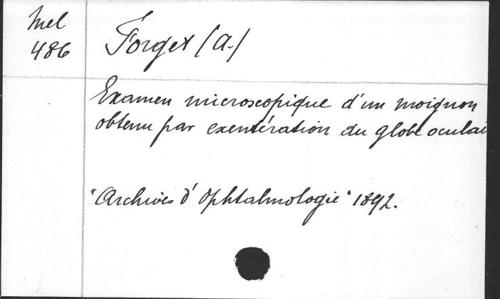 Mel
486
Forget (A.)
Examen microscopique d'un moignon
obtenu par exentération du globe oculai
"Archives d'Ophtalmologie" 1892.